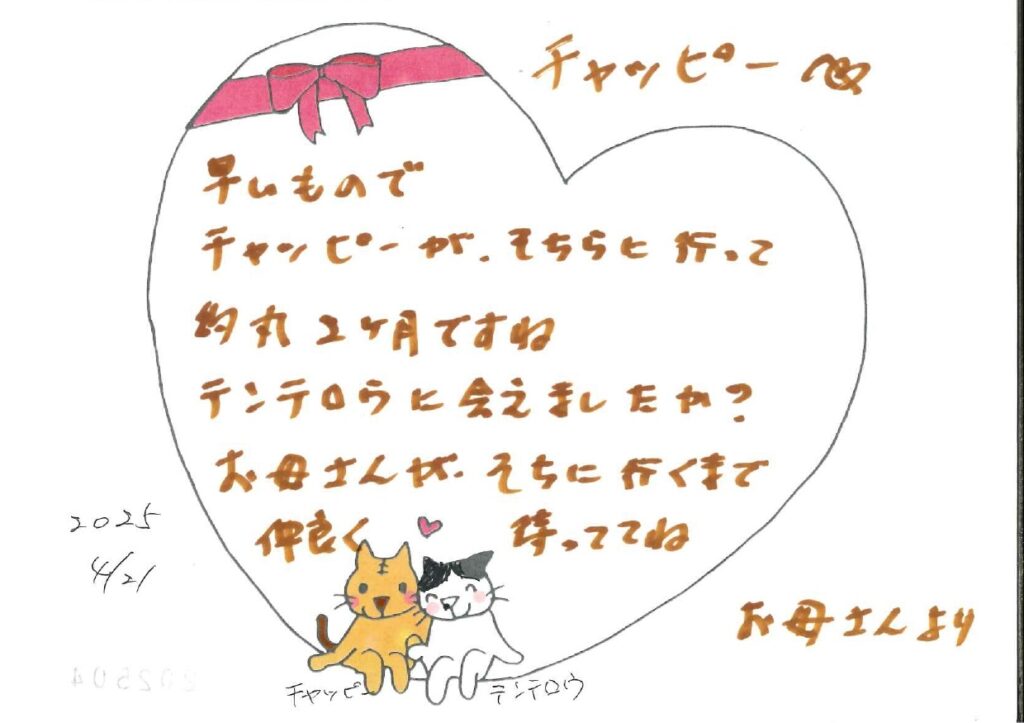 チャッピーへ
早いもので
チャッピーが、そちらに行って
約丸2ヶ月ですね
テンテロウに会えましたか？
お母さんが、そちに行くまで
仲良く 待っててね
お母さんより
2025
4/21
チャッピー
テンテロウ
202504